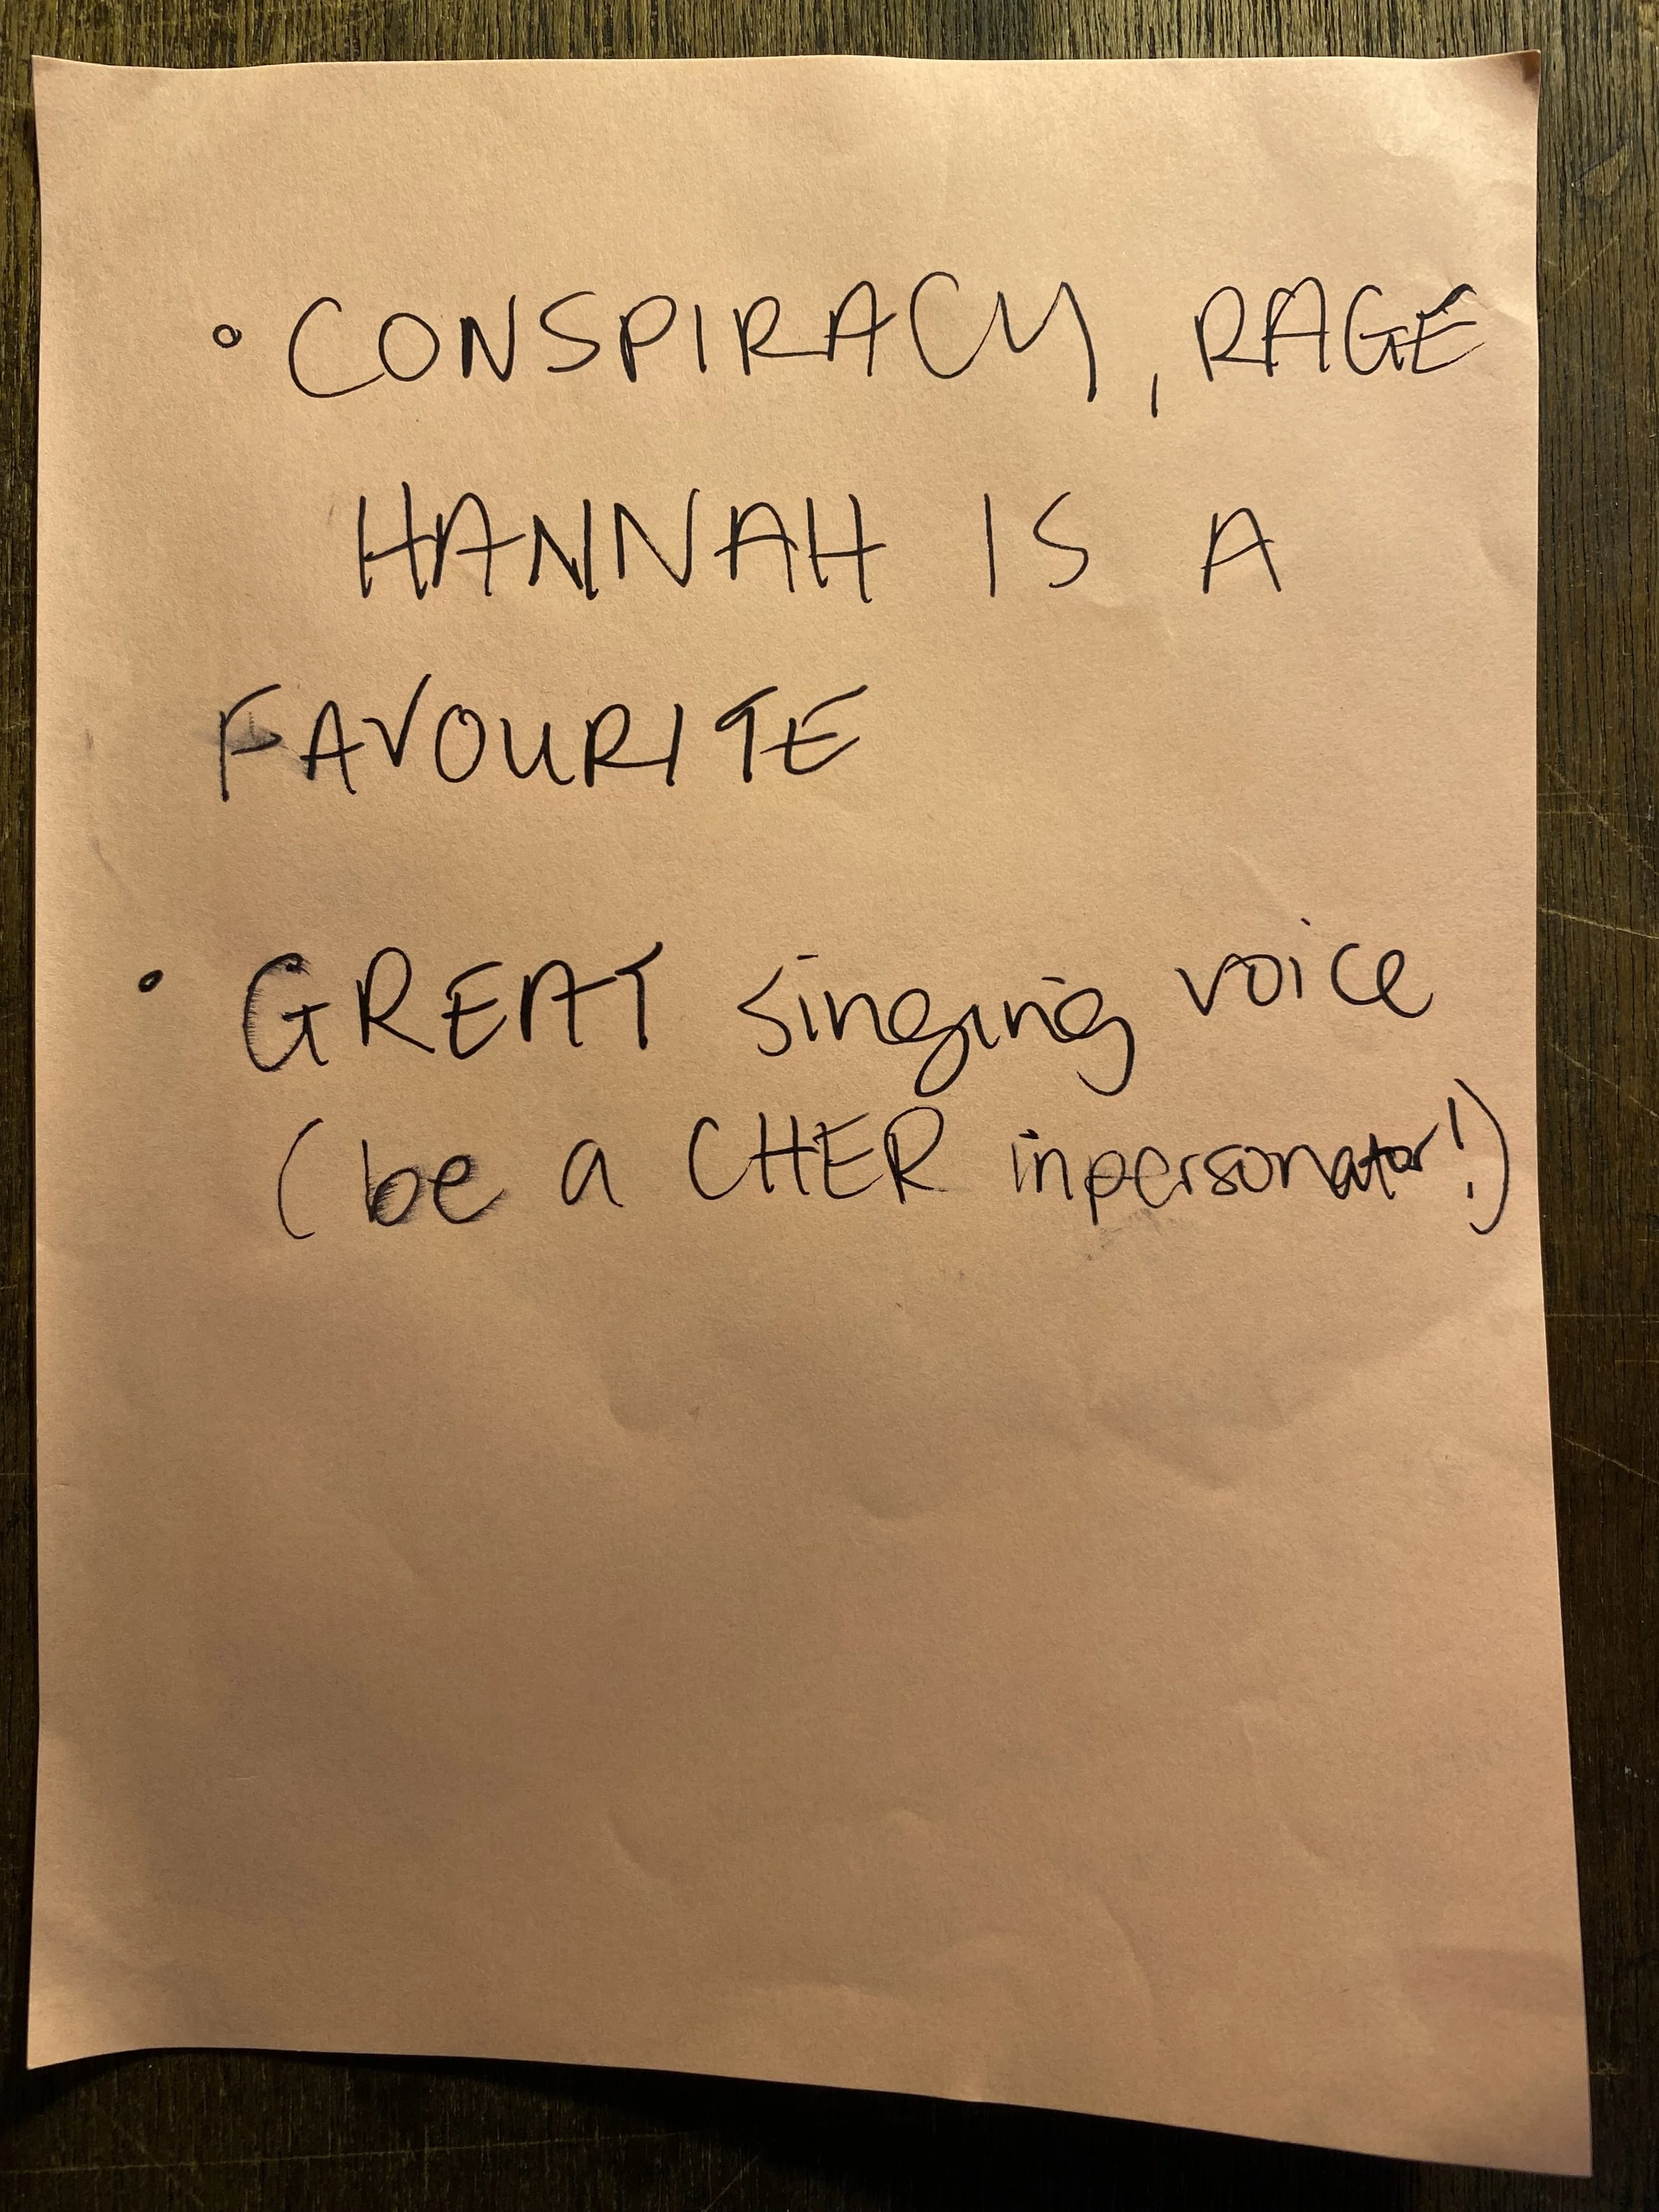 • CONSPIRACY, RAGE
HANNAH IS A
FAVOURITE
• GREAT singing voice
(be a CHER inpersonator!)